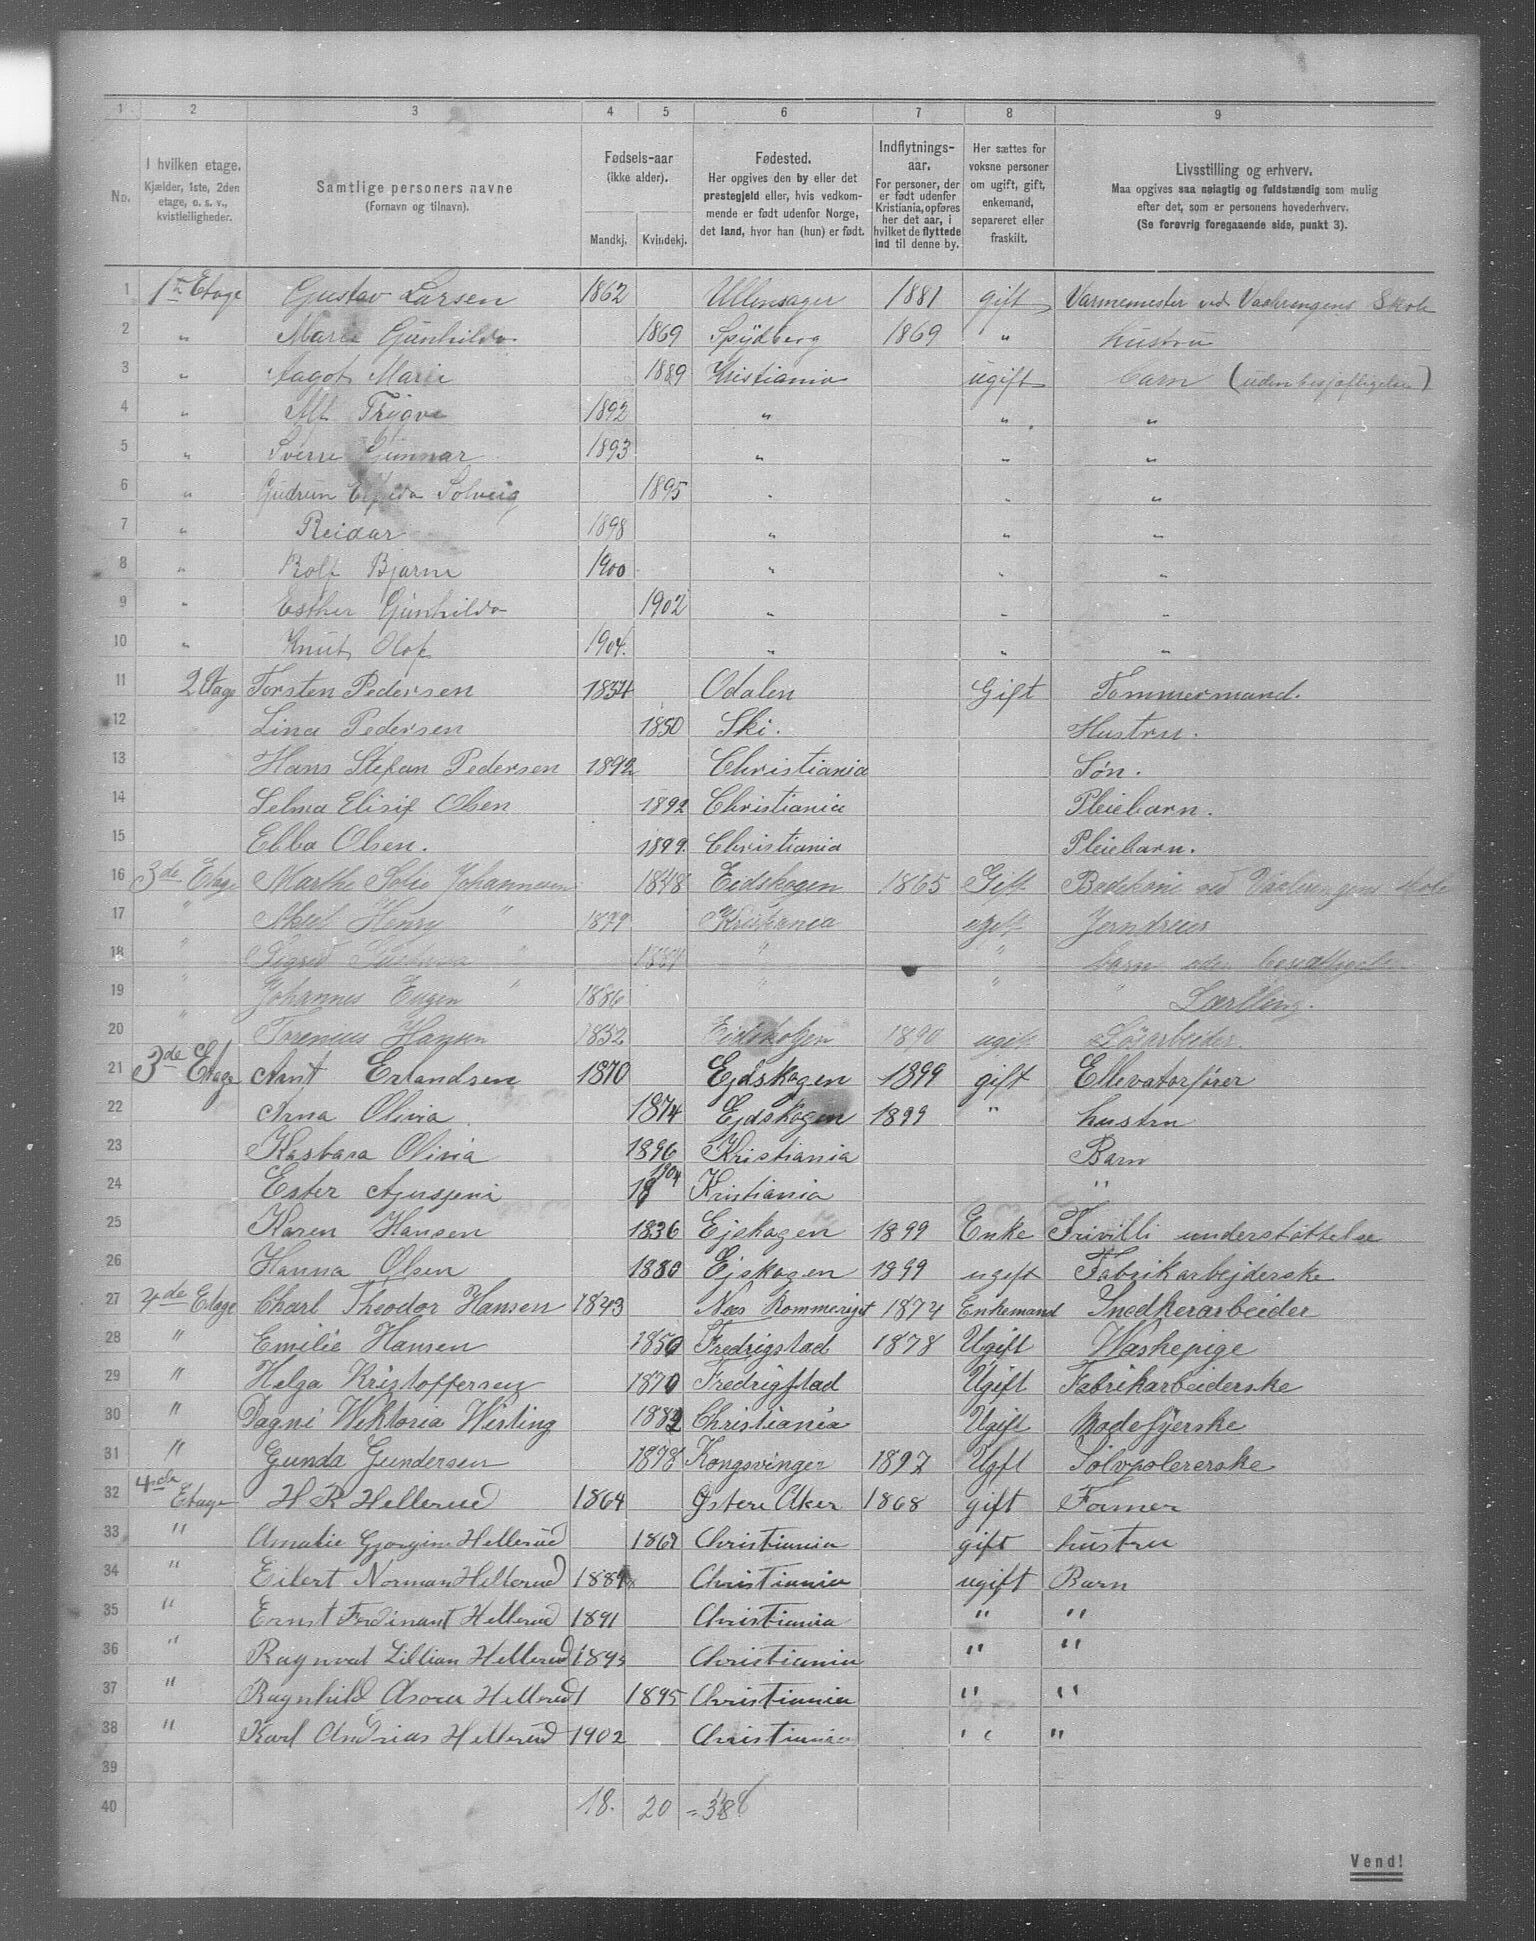 1 2 3 4 5 6 7 8 9
No.
I hvilken etage.
Kjælder, 1ste, 2den
etage, o. s. v.,
kvistleiligheder.
Samtlige personers navne
(Fornavn og tilnavn).
Fødsels-aar
(ikke alder).
Mandkj. Kvindekj.
Fødested.
Her opgives den by eller det
prestegjeld eller, hvis vedkom-
mende er født udenfor Norge,
det land, hvor han (hun) er født.
Indflytnings-
aar.
For personer, der
er født udenfor
Kristiania, opføres
her det aar, i
hvilket de flyttede
ind til denne by.
Her sættes for
voksne personer
om ugift, gift,
enkemand,
separeret eller
fraskilt.
Livsstilling og erhverv.
Maa opgives saa nøiagtig og fuldstændig som mulig
efter det, som er personens hovederhverv.
(Se forøvrig foregaaende side, punkt 3).
1 1ste Etage Gustav Larsen 1862 Ullensager 1881 gift Varmemester ved Vaalerengens Skole
2 " Marie Gunhilda 1869 Spydberg 1869 " hustru
3 " Aagot Marie 1889 Kristiania ugift barn (uden besjæftigelse)
4 " Alf Trygve 1892 " " "
5 " Sverre Gunnar 1893 " " "
6 " Gudrun Solveig 1895 " " "
7 " Reidar 1898 " " "
8 " Rolf Bjarne 1900 " " "
9 " Esther Gunhilda 1902 " " "
10 " Knut Olof 1904 " " "
11 2 Etage Torsten Pedersen 1854 Odalen Gift Tømmermand.
12 Lina Pedersen 1850 Ski. Hustru.
13 Hans Stefan Pedersen 1892 Christiania Søn.
14 Selma Elisif Olsen 1892 Christiania Pleiebarn.
15 Ebba Olsen. 1899. Christiania Pleiebarn.
16 3de Etage Marthe Sofie Johannesen 1848 Eidskogen 1865 Gift Badekone ved Vaalerengens skole
17 " Aksel Henry " 1879 Kristiania ugift Jerndreier
18 " Sigrid " " " barn uden
19 " Johannes Eugen " 1886 " " " Lærling.
20 " Hansen 1852 Eidskogen 1890 ugift Løsarbeider.
21 3de Etage Arnt Erlandsen 1870 Ejdskogen 1899 gift Ellevatorfører
22 Arna Olivia 1874 Ejdskogen 1899 " hustru
23 Kasbara Olivia 1896 Kristiania Barn
24 Ester 1904 Kristiania "
25 Karen Hansen 1836 Ejskogen 1899 Enke Frivilli understøttelse
26 Hanna Olsen 1880 Ejskogen 1899 ugift Fabrikarbejderske
27 4de Etage Charl Theodor Hansen 1843 Nes Rommeriget 1874 Enkemand Snedkerarbeider
28 " Emilie Hansen 1850 Fredrigstad 1878 Ugift Waskepige
29 " Helga Kristoffersen 1870 Fredrigstad Ugift Fabrikarbeiderske
30 " Dagni Wiktoria Wisting 1882 Christiania Ugift Modesyerske
31 " Gunda Gundersen 1878 Kongsvinger 1897 Ugift Sølvpolererske
32 4de Etage H R Hellerud 1864 Østere Aker 1868 gift Former
33 " Amalie Gjorgine Hellerud 1869 Christiania gift hustru
34 " Eilert Norman Hellerud 1889 Christiania ugift Barn
35 " Ernst Ferdinant Hellerud 1891 Christiania " "
36 " Ragnvat Lillian Hellerud 1893 Christiania " "
37 " Ragnhild Hellerud 1895 Christiania " "
38 " Karl Andrias Hellerud 1902 Christiania " "
39
40 18. 20 = 38
Vend!